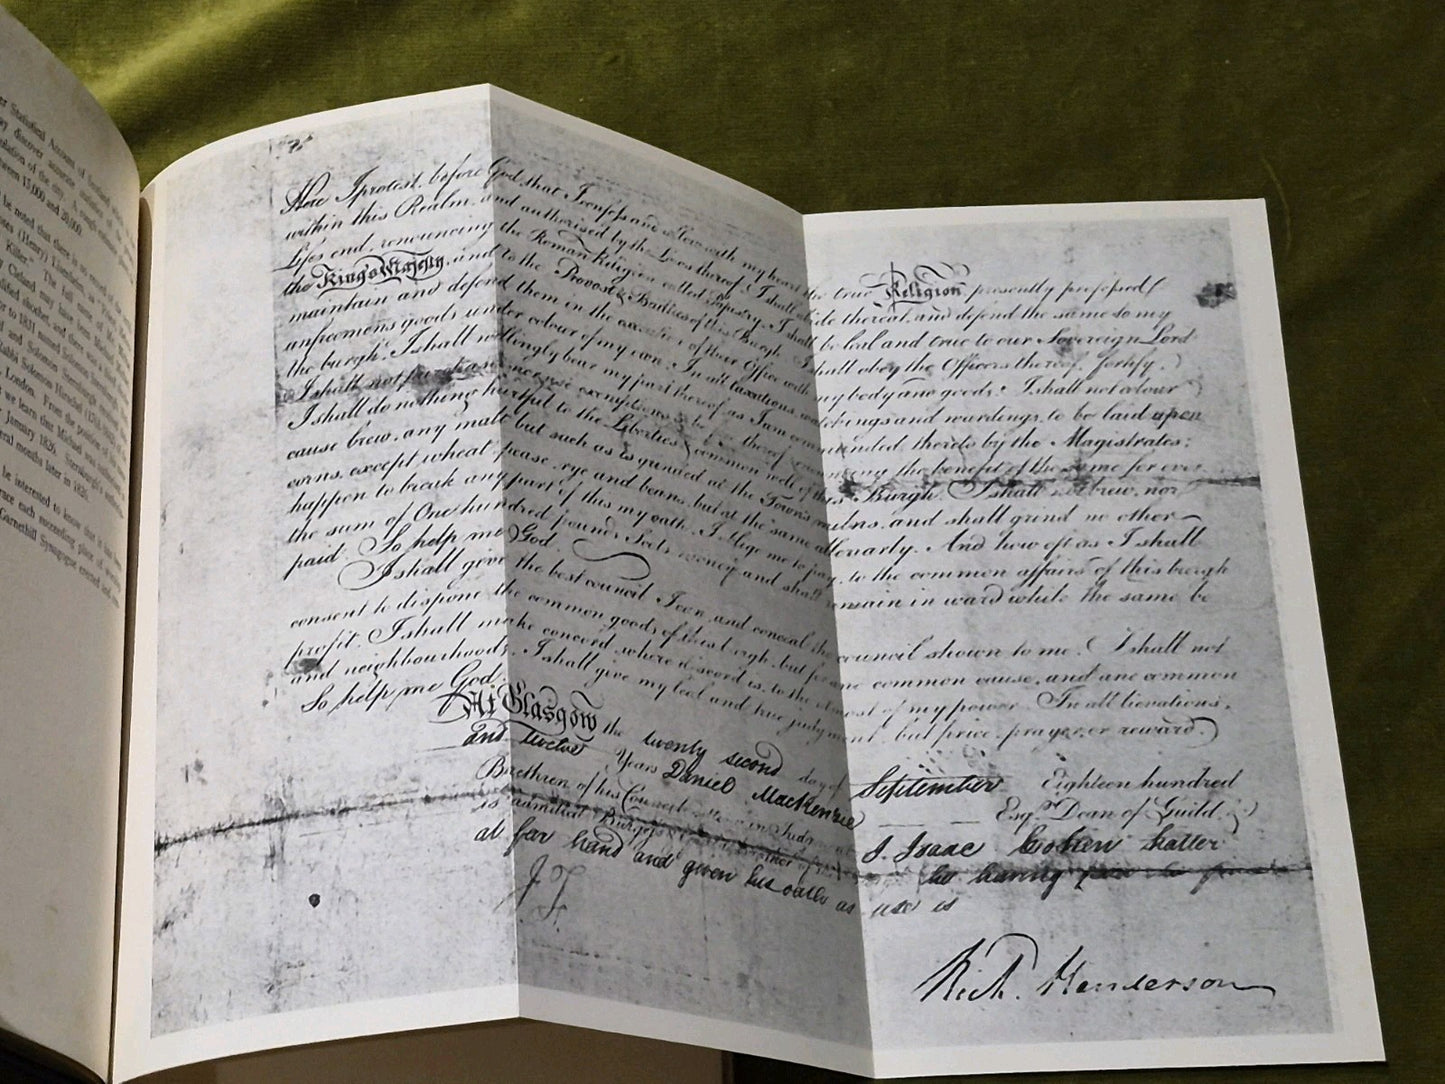 er Statistical Account of Scotland
ay discover accurate
ulation of the city. A rough estimate
ween 15,000 and 20,000.
be noted that there is no record of the
oses (Henry) Lisenheim, as "one of the
Killer". The full name of Mr.
y Cleland may have been Michael
lified shochet, and, as there was a
or to 1831 named Solomon Sternburgh
l and Solomon Sternburgh
Rabbi Solomon Hirschel (1762-1842)
London. From the position of the
s we learn that Michael was
January 1826. Sternburgh's
eral months later in 1826.
be interested to know that
race each succeeding place of
Garnethill Synagogue erected
Here I protest, before God, that I confess and allow with my heart the true Religion presently professed
within this Realm, and authorised by the Laws thereof; I shall abide thereat, and defend the same to my
Life's end, renouncing the Roman Religion called Papistry. I shall be leal and true to our Sovereign Lord
the King's Majesty, and to the Provost & Baillies of this Burgh. I shall obey the Officers thereof, fortify,
maintain and defend them in the execution of their Office with my body and goods; I shall not colour
unfreemens goods under colour of my own; In all taxations, watchings and wardings, to be laid upon
the burgh, I shall willingly bear my part thereof as I am commanded thereto by the Magistrates;
I shall not purchase nor use exemptions to be free thereof renouncing the benefit of the same for ever.
I shall do nothing hurtful to the Liberties & common well of this Burgh. I shall not brew, nor
cause brew, any malt but such as is grinded at the Town's milns, and shall grind no other
corns, except wheat, pease, rye and beans, but at the same allenarly. And how oft as I shall
happen to break any part of this my oath, I oblige me to pay, to the common affairs of this burgh
the sum of One hundred pounds Scots money and shall remain in ward while the same be
paid. So help me God.
I shall give the best council I can, and conceal the council shown to me. I shall not
consent to dispone the common goods of this burgh, but for ane common cause, and ane common
profit. I shall make concord, where discord is, to the utmost of my power. In all lienations,
and neighbourhoods, I shall give my leal and true judgment, but price, prayer, or reward.
So help me God.
At Glasgow the twenty second day of September Eighteen hundred
and twelve Years Daniel MacKenzie Esqr. Dean of Guild &
Brethren of his Council J. Isaac Cohen hatter
is admitted Burgess & he having
at far hand and given his oath as use is
J. F.
Rich. Henderson